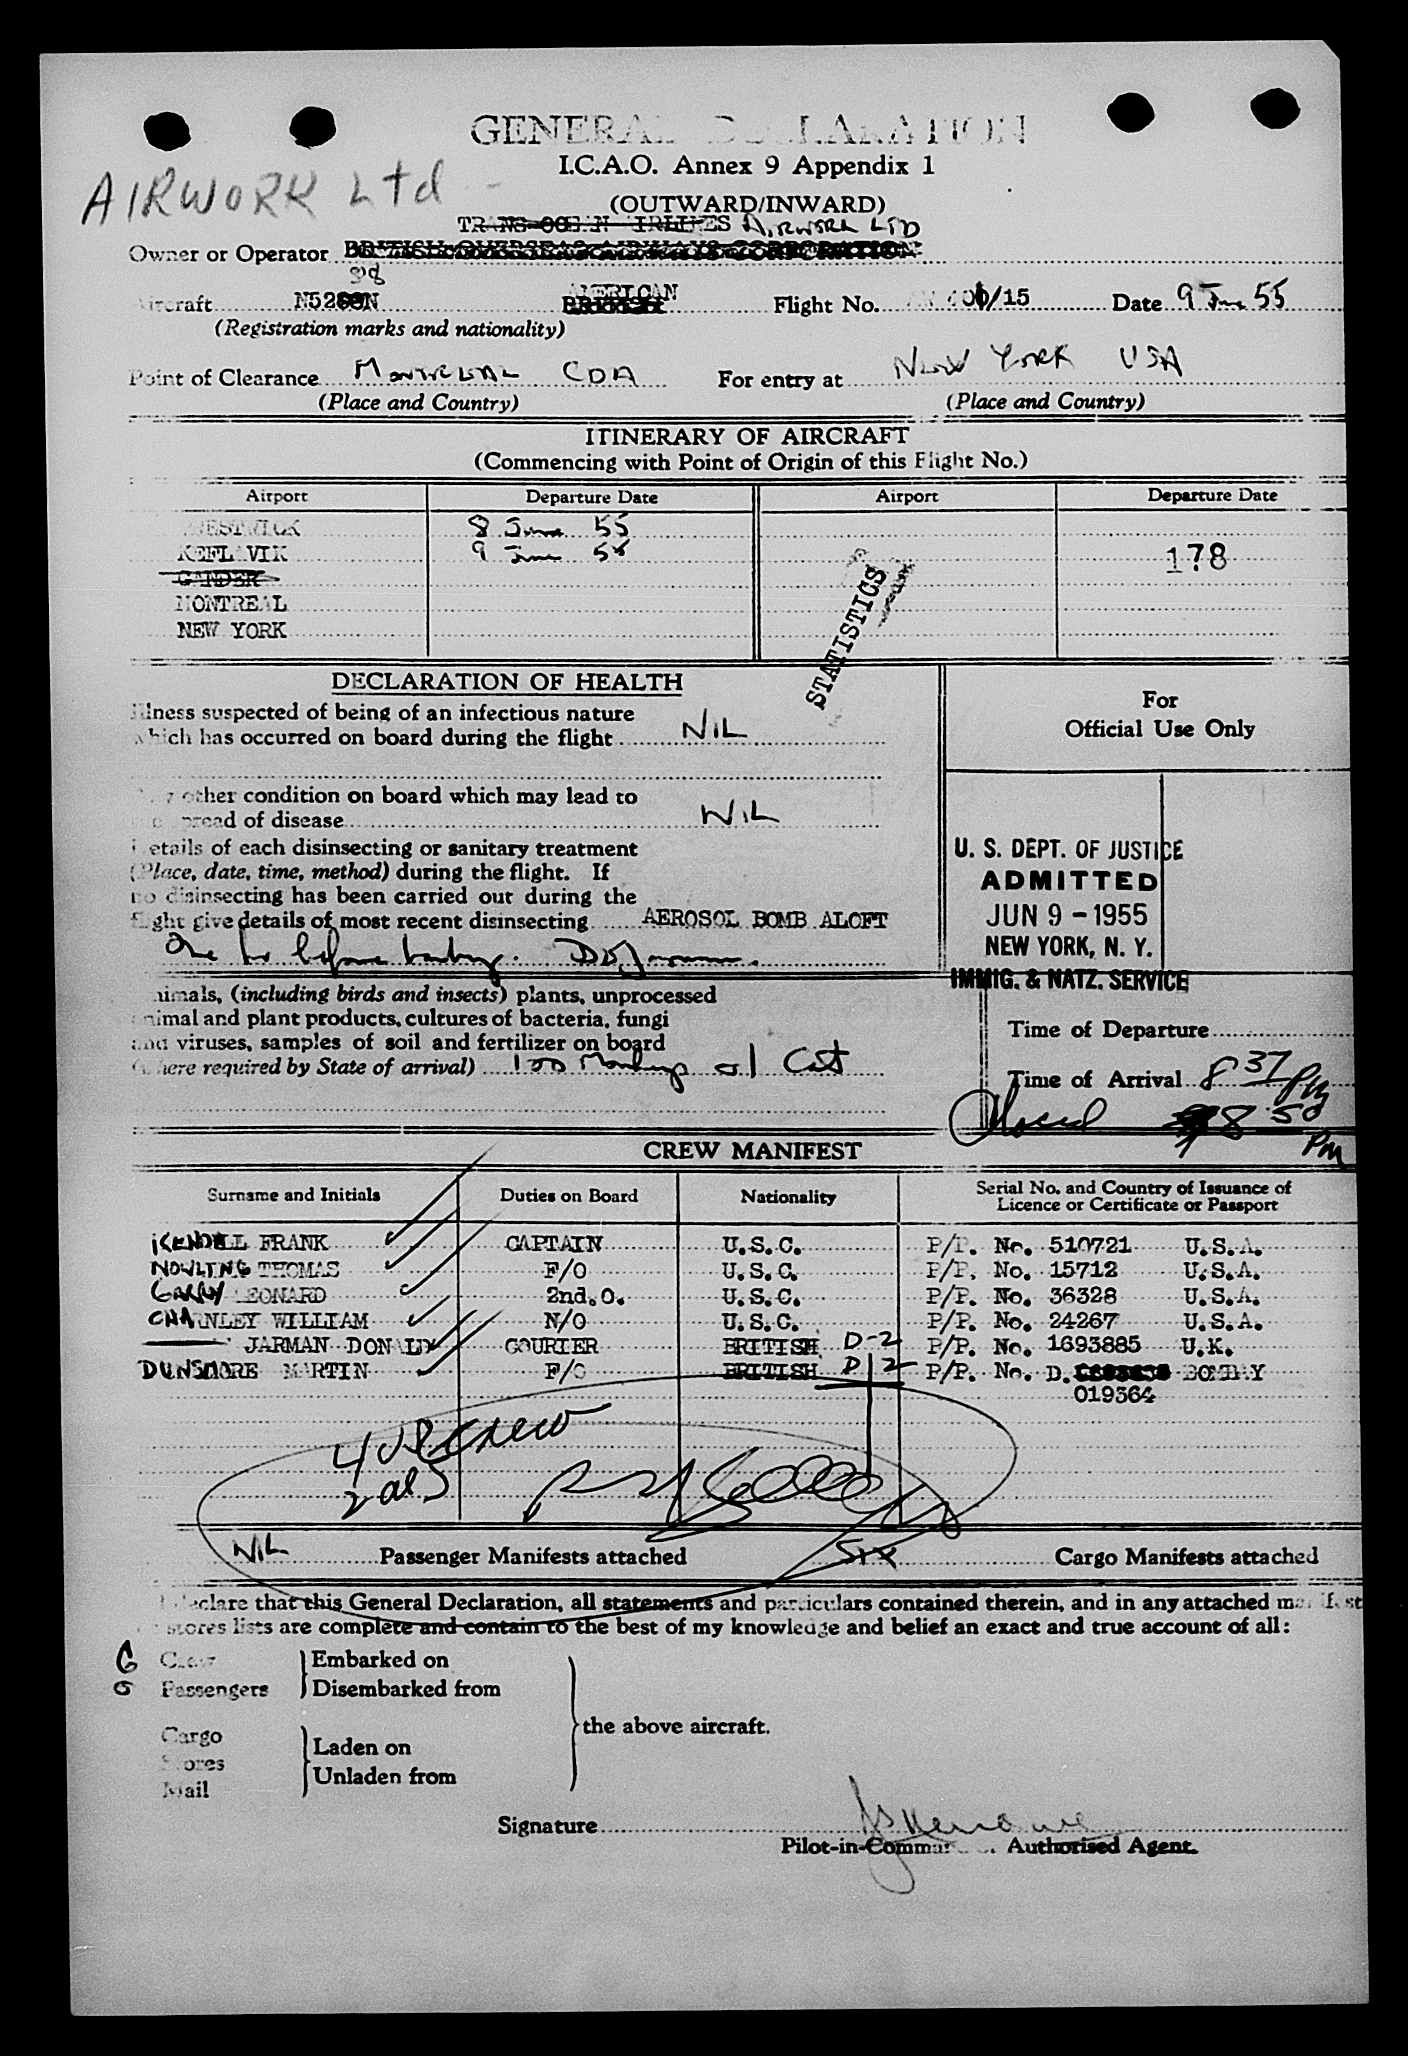 GENERAL DECLARATION
I.C.A.O. Annex 9 Appendix 1
AIRWORK Ltd
(OUTWARD/INWARD)
TRANS-OCEAN AIRLINES AIRWORK LTD
Owner or Operator BRITISH OVERSEAS AIRWAYS CORPORATION
98
Aircraft N5288N AMERICAN BRITISH Flight No. /15 Date 9 June 55
(Registration marks and nationality)
Point of Clearance MONTREAL CDA For entry at NEW YORK USA
(Place and Country) (Place and Country)
ITINERARY OF AIRCRAFT
(Commencing with Point of Origin of this Flight No.)
Airport Departure Date Airport Departure Date
PRESTWICK 8 June 55
KEFLAVIK 9 June 55 178
GANDER
MONTREAL
NEW YORK
STATISTICS
DECLARATION OF HEALTH
For
Official Use Only
Illness suspected of being of an infectious nature
which has occurred on board during the flight NIL
Any other condition on board which may lead to
the spread of disease NIL
Details of each disinsecting or sanitary treatment
(Place, date, time, method) during the flight. If
no disinsecting has been carried out during the
flight give details of most recent disinsecting AEROSOL BOMB ALOFT
One hr before landing. DDJarman.
U. S. DEPT. OF JUSTICE
ADMITTED
JUN 9 - 1955
NEW YORK, N. Y.
IMMIG. & NATZ. SERVICE
Animals, (including birds and insects) plants, unprocessed
animal and plant products, cultures of bacteria, fungi
and viruses, samples of soil and fertilizer on board
(Where required by State of arrival) 100 Monkeys 1 Cat
Time of Departure
Time of Arrival 8 37 PM
8 50 PM
CREW MANIFEST
Surname and Initials Duties on Board Nationality Serial No. and Country of Issuance of Licence or Certificate or Passport
KENDALL FRANK CAPTAIN U.S.C. P/P. No. 510721 U.S.A.
NOWLING THOMAS F/O U.S.C. P/P. No. 15712 U.S.A.
GARRY LEONARD 2nd.O. U.S.C. P/P. No. 36328 U.S.A.
CHARNLEY WILLIAM N/O U.S.C. P/P. No. 24267 U.S.A.
JARMAN DONALD COURIER BRITISH D-2 P/P. No. 1693885 U.K.
DUNSMORE MARTIN F/O BRITISH D-2 P/P. No. D. BOMBAY
019364
4 US Crew
2 als
NIL Passenger Manifests attached SIX Cargo Manifests attached
I declare that this General Declaration, all statements and particulars contained therein, and in any attached manifest
stores lists are complete and contain to the best of my knowledge and belief an exact and true account of all:
6 Crew Embarked on
0 Passengers Disembarked from
the above aircraft.
Cargo Laden on
Stores
Mail Unladen from
Signature
Pilot-in-Command or Authorised Agent.